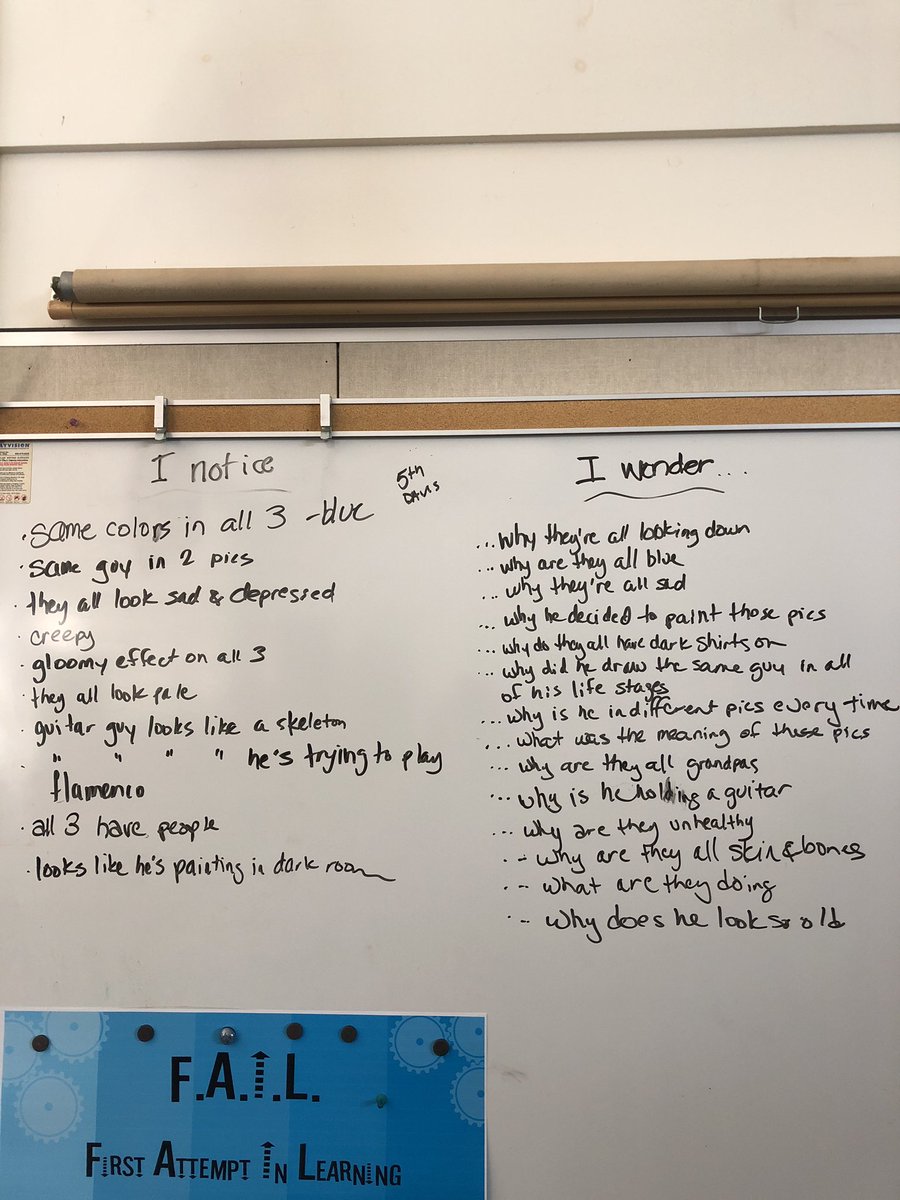 I notice
5th
DAVIS
• same colors in all 3 - blue
• same guy in 2 pics
• they all look sad & depressed
• creepy
• gloomy effect on all 3
• they all look pale
• guitar guy looks like a skeleton
• " " " " he's trying to play
flamenco
• all 3 have people
• looks like he's painting in dark room
I wonder...
... why they're all looking down
... why are they all blue
... why they're all sad
... why he decided to paint those pics
... why do they all have dark shirts on
... why did he draw the same guy in all
of his life stages
... why is he in different pics every time
... what was the meaning of these pics
... why are they all grandpas
... why is he holding a guitar
... why are they unhealthy
... why are they all skin & bones
... what are they doing
... why does he look so old
F.A.I.L.
FIRST ATTEMPT IN LEARNING